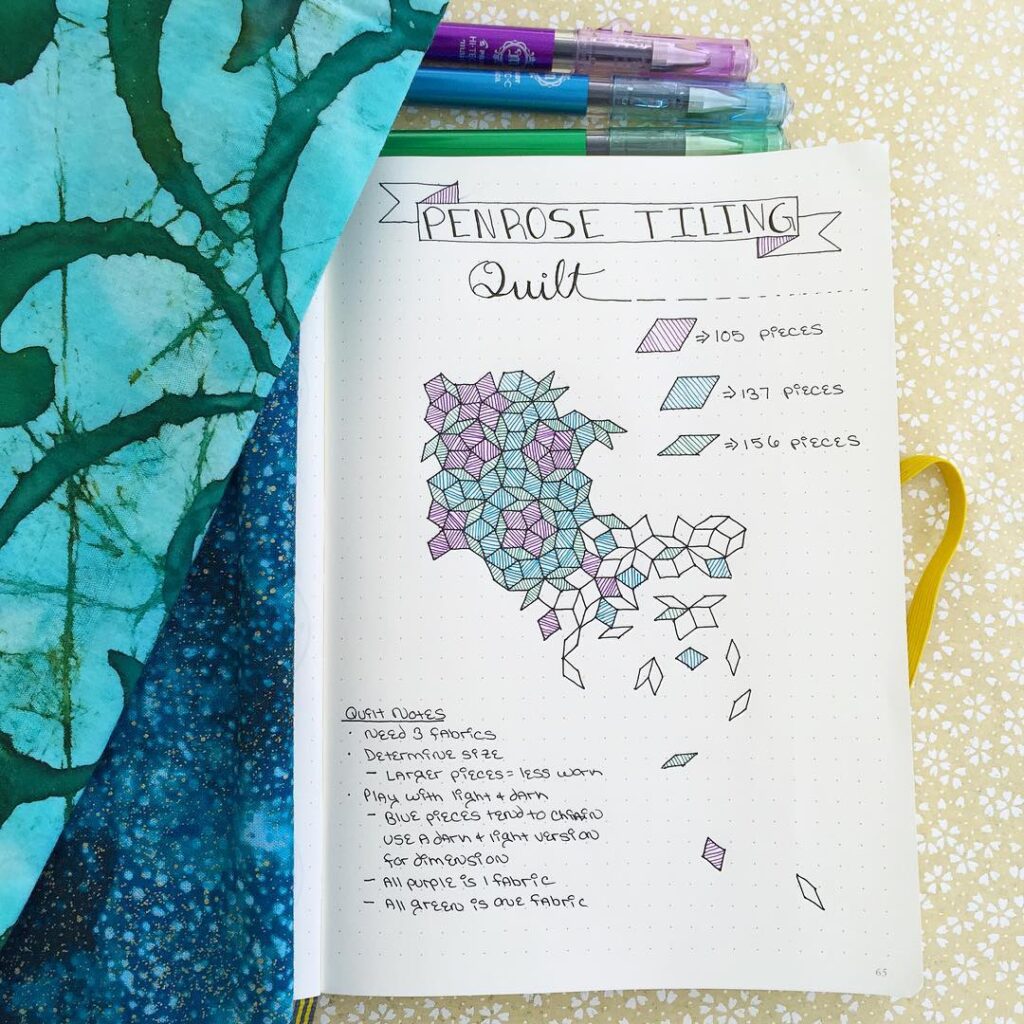 HI-TE
PENROSE TILING
Quilt
⇒ 105 PIECES
⇒ 137 PIECES
⇒ 156 PIECES
Quilt Notes
· Need 3 fabrics
· Determine size
- Larger pieces = less work
· Play with light + dark
- Blue pieces tend to chain
use a dark + light version
for dimension
- All purple is 1 fabric
- All green is one fabric
65